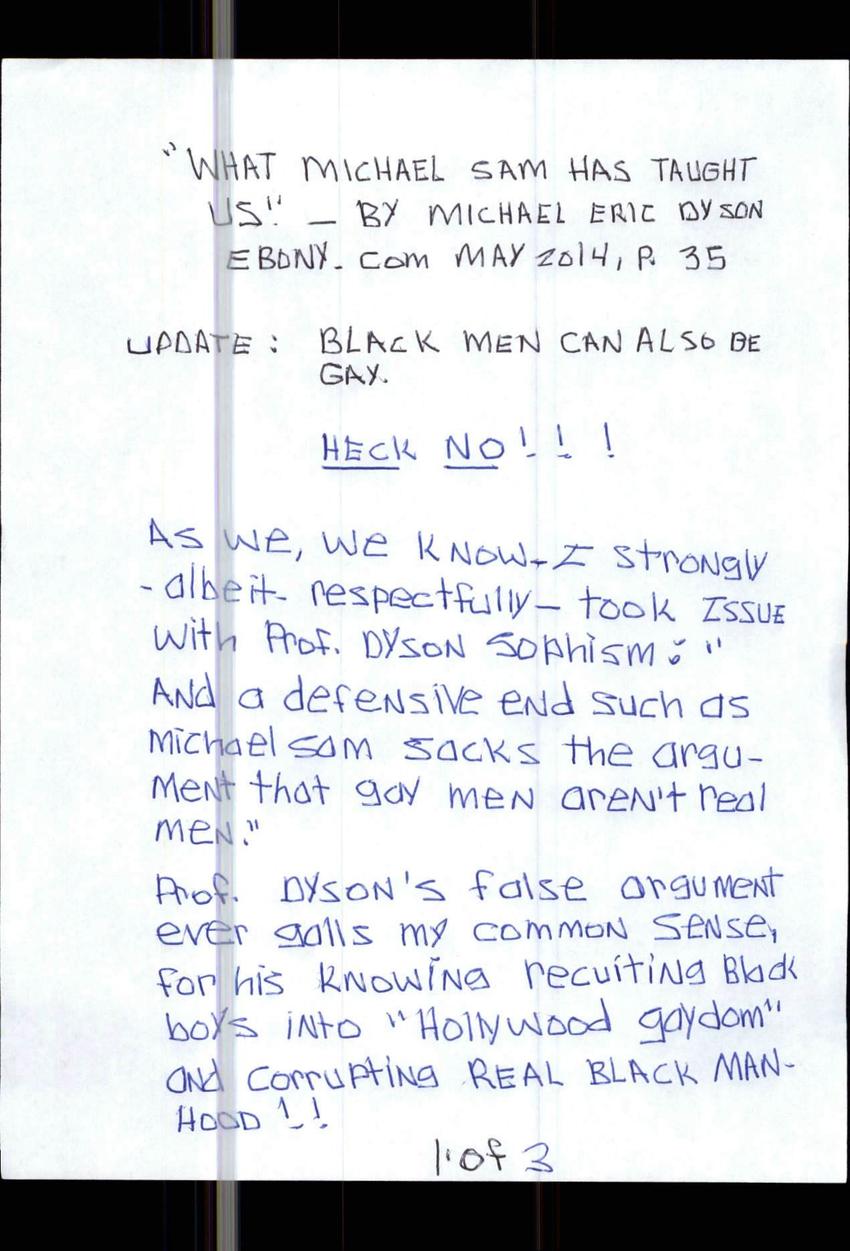 "WHAT MICHAEL SAM HAS TAUGHT
US" — BY MICHAEL ERIC DYSON
EBONY.com MAY 2014, P. 35
UPDATE: BLACK MEN CAN ALSO BE
GAY.
HECK NO!!!
As we, we know - I strongly
- albeit - respectfully - took ISSUE
with Prof. DYSON Sophism: "
And a defensive end such as
Michael Sam sacks the argu-
ment that gay men aren't real
men."
Prof. DYSON's false argument
ever galls my common sense,
for his knowing recuiting Black
boys into "Hollywood gaydom"
and corrupting REAL BLACK MAN-
HOOD!!
1 of 3